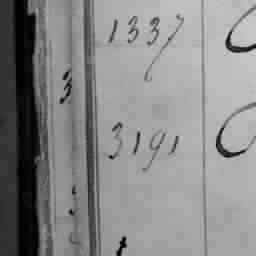 1337
3
3191